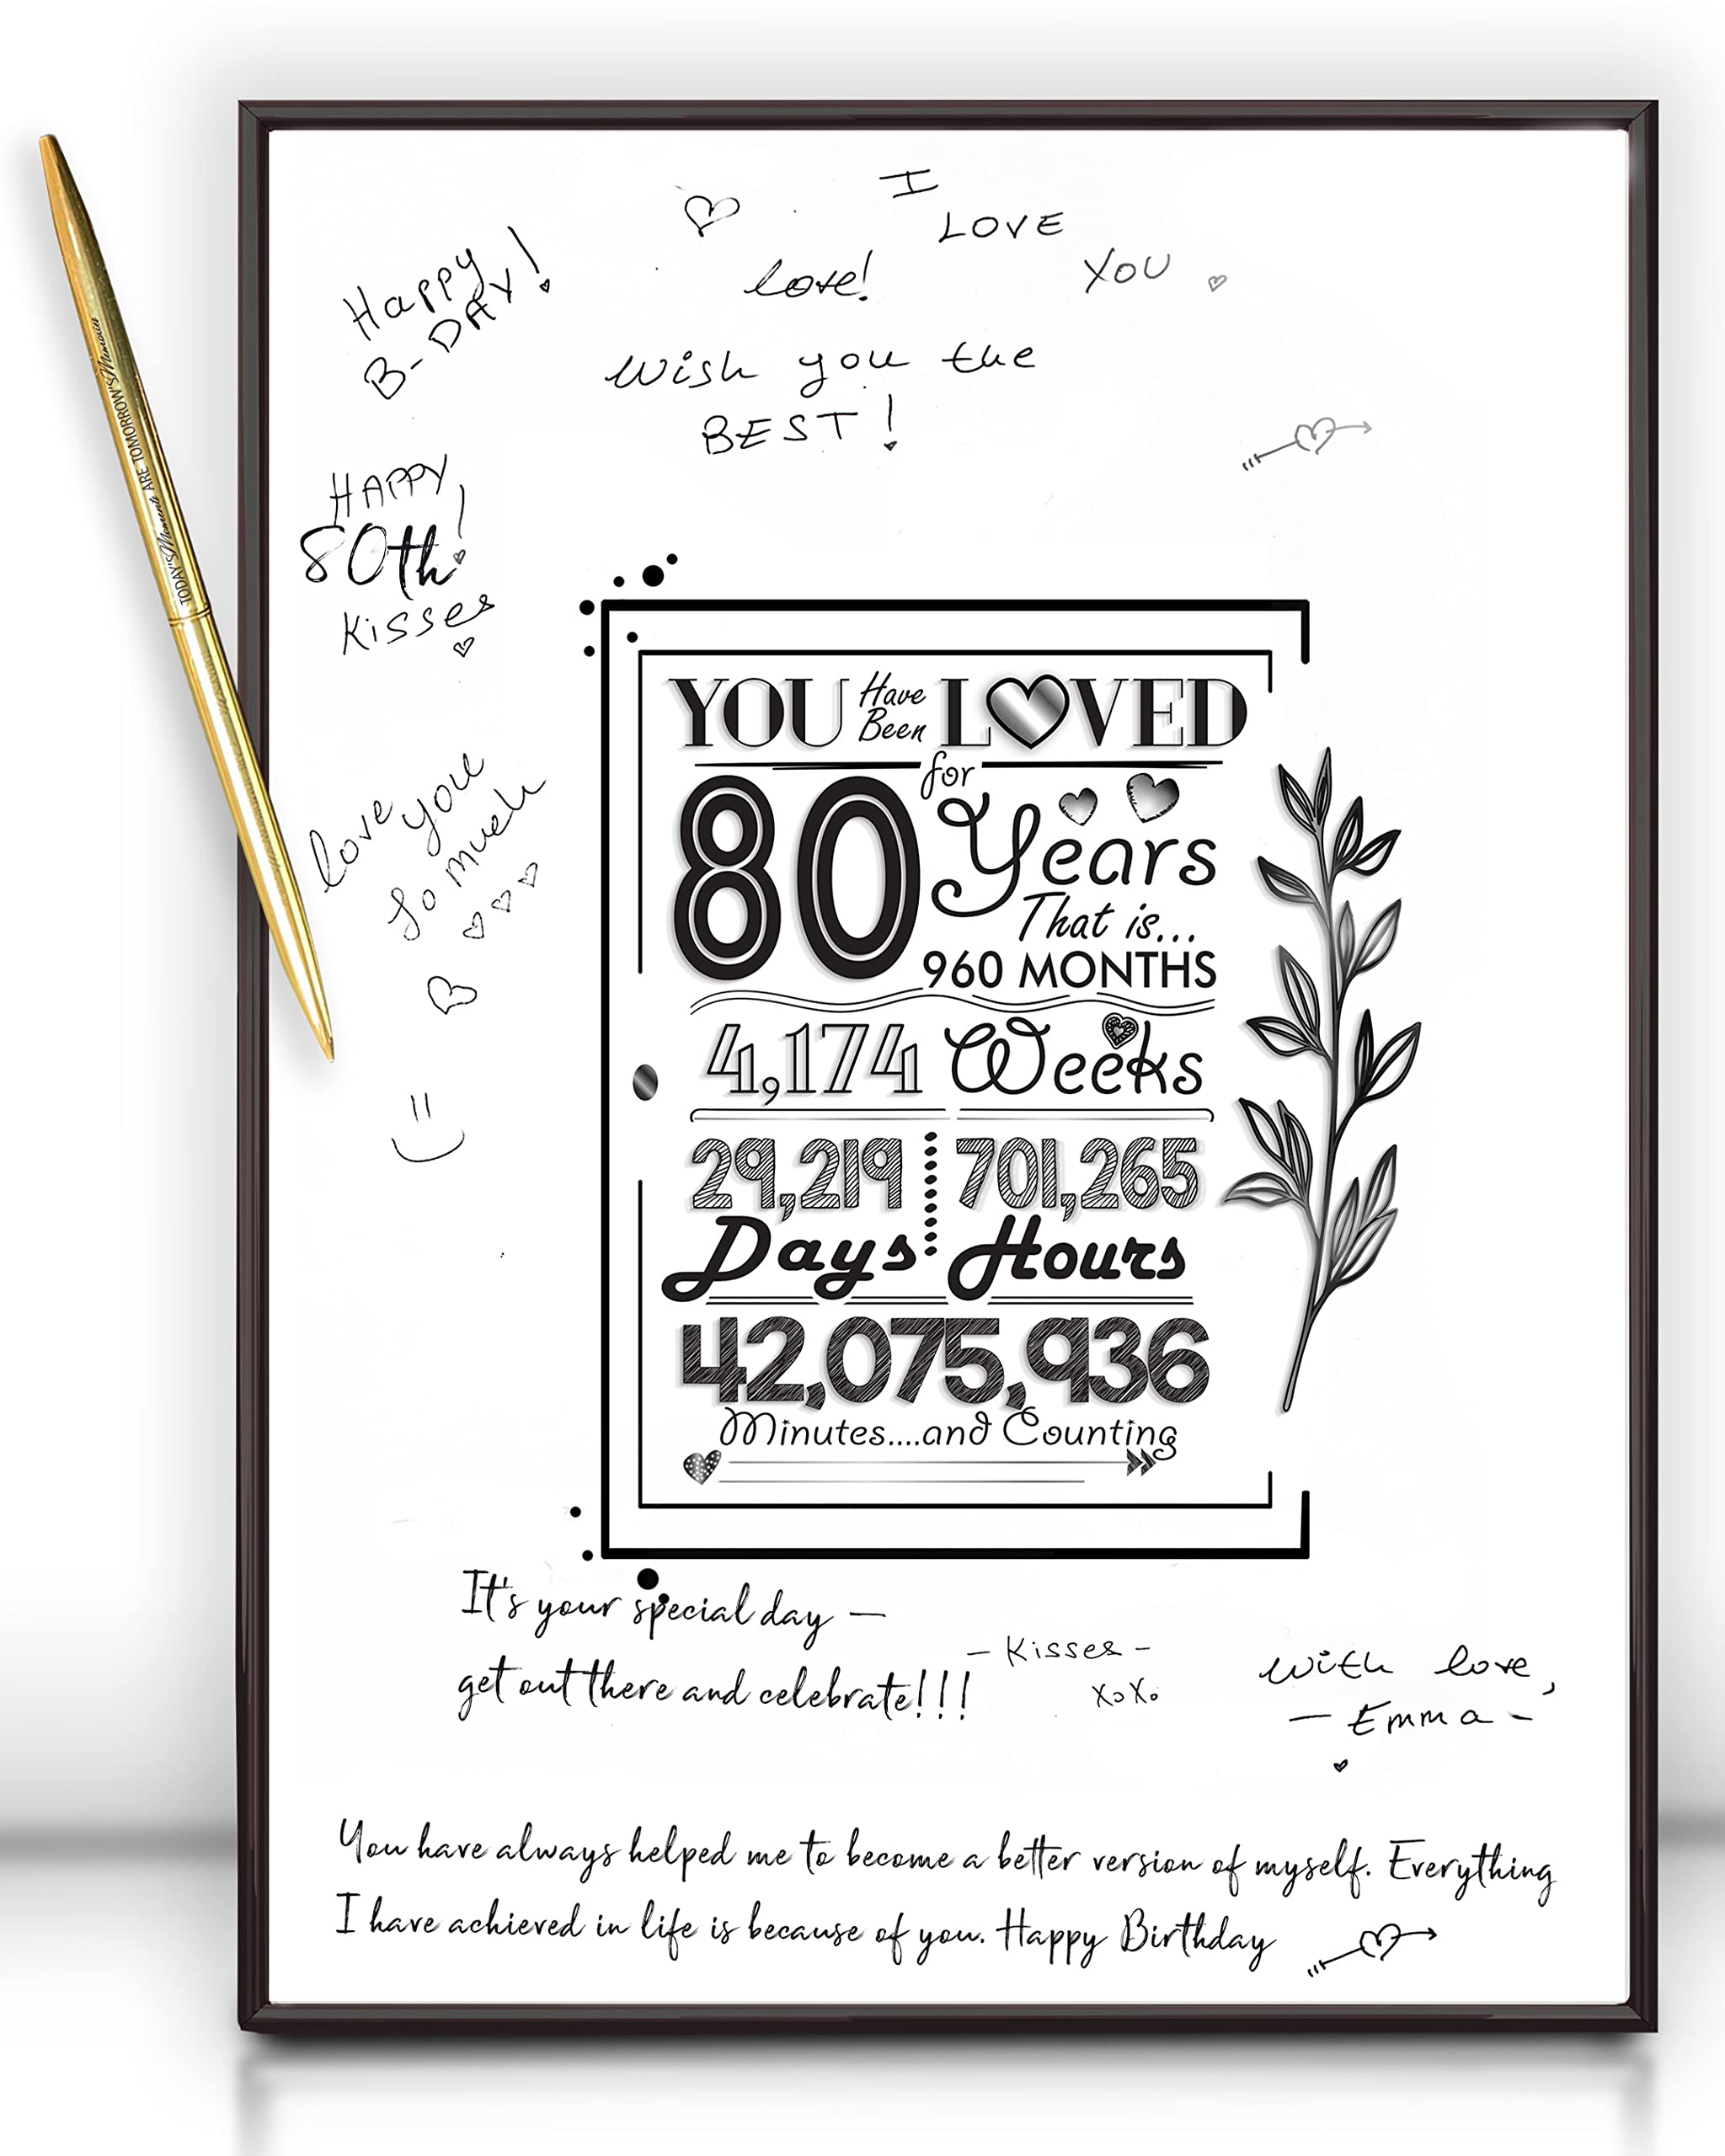 I
LOVE
YOU
love!
Happy
B-DAY!
Wish you the
BEST!
HAPPY
80th!
Kisses
love you
so much
YOU Have Been LOVED
for
80 Years
That is...
960 MONTHS
4,174 Weeks
29,219 Days
701,265 Hours
42,075,936
Minutes....and Counting
It's your special day —
get out there and celebrate!!!
- Kisses -
XoXo
With love,
- Emma -
You have always helped me to become a better version of myself. Everything
I have achieved in life is because of you. Happy Birthday
TODAY'S Moments ARE TOMORROW'S Memories